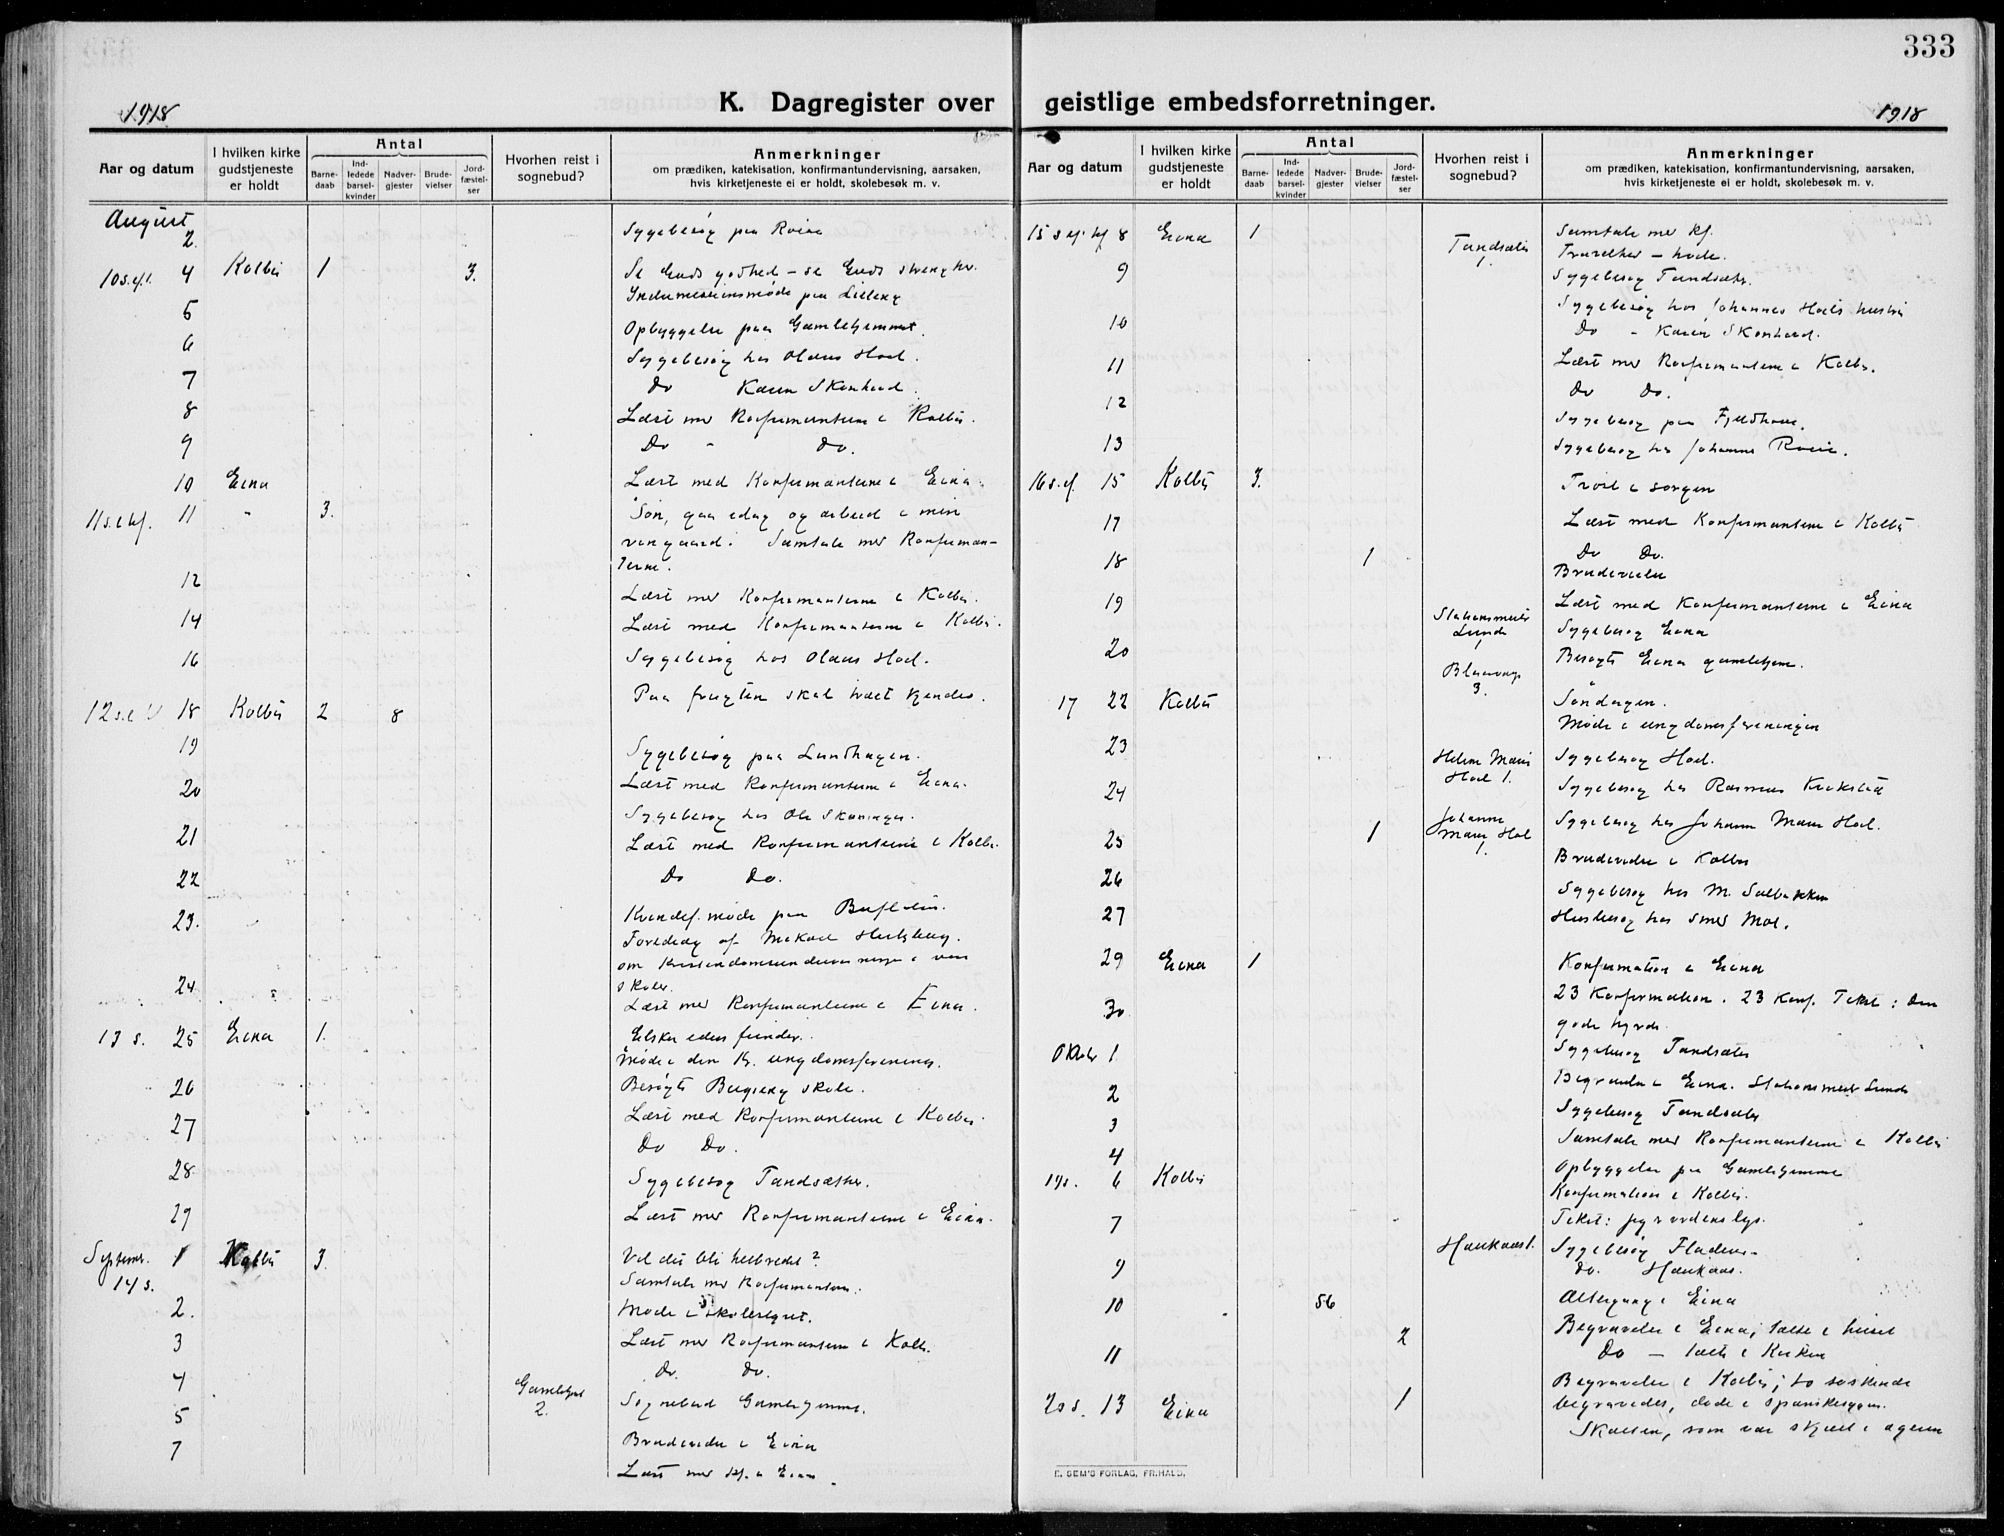 333
K. Dagregister over geistlige embedsforretninger.
1918
1918
Aar og datum
I hvilken kirke gudstjeneste er holdt
Antal
Barne-daab
Ind-ledede barsel-kvinder
Nadver-gjester
Brude-vielser
Jord-fæstel-ser
Hvorhen reist i sognebud?
Anmerkninger
om prædiken, katekisation, konfirmantundervisning, aarsaken,
hvis kirketjeneste ei er holdt, skolebesøk m. v.
August
2. Sygebesøg paa
10 s. e. t. 4 Kolbu 1 3. Se Guds godhed – se Guds strenghed.
Indremissionsmøde paa
5 Opbyggelse paa Gamlehjemmet.
6 Sygebesøg hos Olaus Hoel.
7 Do Karen Skonhard
8 Læst med Konfirmanterne i Kolbu.
9 Do - Do.
10 Eina Læst med Konfirmanterne i Eina.
11 s. e. tr. 11 " 3. Søn, gaa idag og arbeid i min
vingaard. Samtale med Konfirman-
terne.
12 Læst med Konfirmanterne i Kolbu.
14 Læst med Konfirmanterne i Kolbu.
16 Sygebesøg hos Olaus Hoel.
12 s. e. tr 18 Kolbu 2 8 Paa frugten skal træet kjendes.
19 Sygebesøg paa Lundhagen.
20 Læst med Konfirmanterne i Eina.
Sygebesøg hos Ole
21 Læst med Konfirmanterne i Kolbu.
22 Do Do.
23. Kvindef. møde paa
Foredrag af
om Kristendomsundervisningen i vore
skoler.
24 Læst med Konfirmanterne i Eina.
13 s. 25 Eina 1. Elsker eders fiender.
Møde i den Kr. ungdomsforening.
26 Besøgt skole.
27 Læst med Konfirmanterne i Kolbu.
Do Do.
28 Sygebesøg Tandsæther.
29 Læst med Konfirmanterne i Eina.
Septemr. 1 Kolbu 3. Vil du bli helbredet?
14 s. Samtale med Konfirmanterne.
2. Møde i skolestyret.
3 Læst med Konfirmanterne i Kolbu.
4 Do. Do.
5 Gamlehjmt 2. Sognebud Gamlehjemmet.
7 Brudevielse i Eina
Læst med Kf. i Eina.
Aar og datum
I hvilken kirke gudstjeneste er holdt
Antal
Barne-daab
Ind-ledede barsel-kvinder
Nadver-gjester
Brude-vielser
Jord-fæstel-ser
Hvorhen reist i sognebud?
Anmerkninger
om prædiken, katekisation, konfirmantundervisning, aarsaken,
hvis kirketjeneste ei er holdt, skolebesøk m. v.
15 s. ef. tr 8 Eina 1 Samtale med Kf.
Tandsæter 1.
9 Sygebesøg Tandsæter.
Sygebesøg hos Johannes Hoels hustru
10 Do - Karen Skonhard.
11 Læst med Konfirmanterne i Kolbu.
12 Do Do.
Sygebesøg paa
13 Sygebesøg hos Johannes
16 s. ef. 15 Kolbu 3. Trøst i sorgen
17 Læst med Konfirmanterne i Kolbu
18 1 Do Do.
Brudevielse
19 Læst med Konfirmanterne i Eina
Stationsmester Lunde 1 Sygebesøg Eina
20 Besøgt Eina gamlehjem.
3.
17 22 Kolbu Søndagen.
Møde i ungdomsforeningen
23 Helene Marie Hoel 1. Sygebesøg Hoel.
24 Sygebesøg hos Rasmus
Johanne Marie Hoel 1. Sygebesøg hos Johanne Marie Hoel.
25 1 Brudevielse i Kolbu
26 Sygebesøg hos M. Solbakken
27 Husbesøg hos
29 Eina 1 Konfirmation i Eina
30 23 Konfirmation. 23 Konf. Tekst: Den
gode hyrde.
Oktober 1 Sygebesøg Tandsæter
2 Begravelse i Eina. Stationsmester Lunde
3 Sygebesøg Tandsæter
4 Samtale med Konfirmanterne i Kolbu
Opbyggelse paa Gamlehjemmet
19 s. 6 Kolbu Konfirmation i Kolbu.
Tekst: Jeg er verdens lys.
7 Haukaas 1. Sygebesøg
9 do. Haukaas.
10 56 Altergang i Eina
2 Begravelse i Eina; talte i huset
11 Do – talte i Kirken
Begravelse i Kolbu; to søskende
20 s. 13 Eina 1 begravedes, døde i spanskesygen.
Skatten, som var skjult i ageren
E. SEM'S FORLAG, FR.HALD.